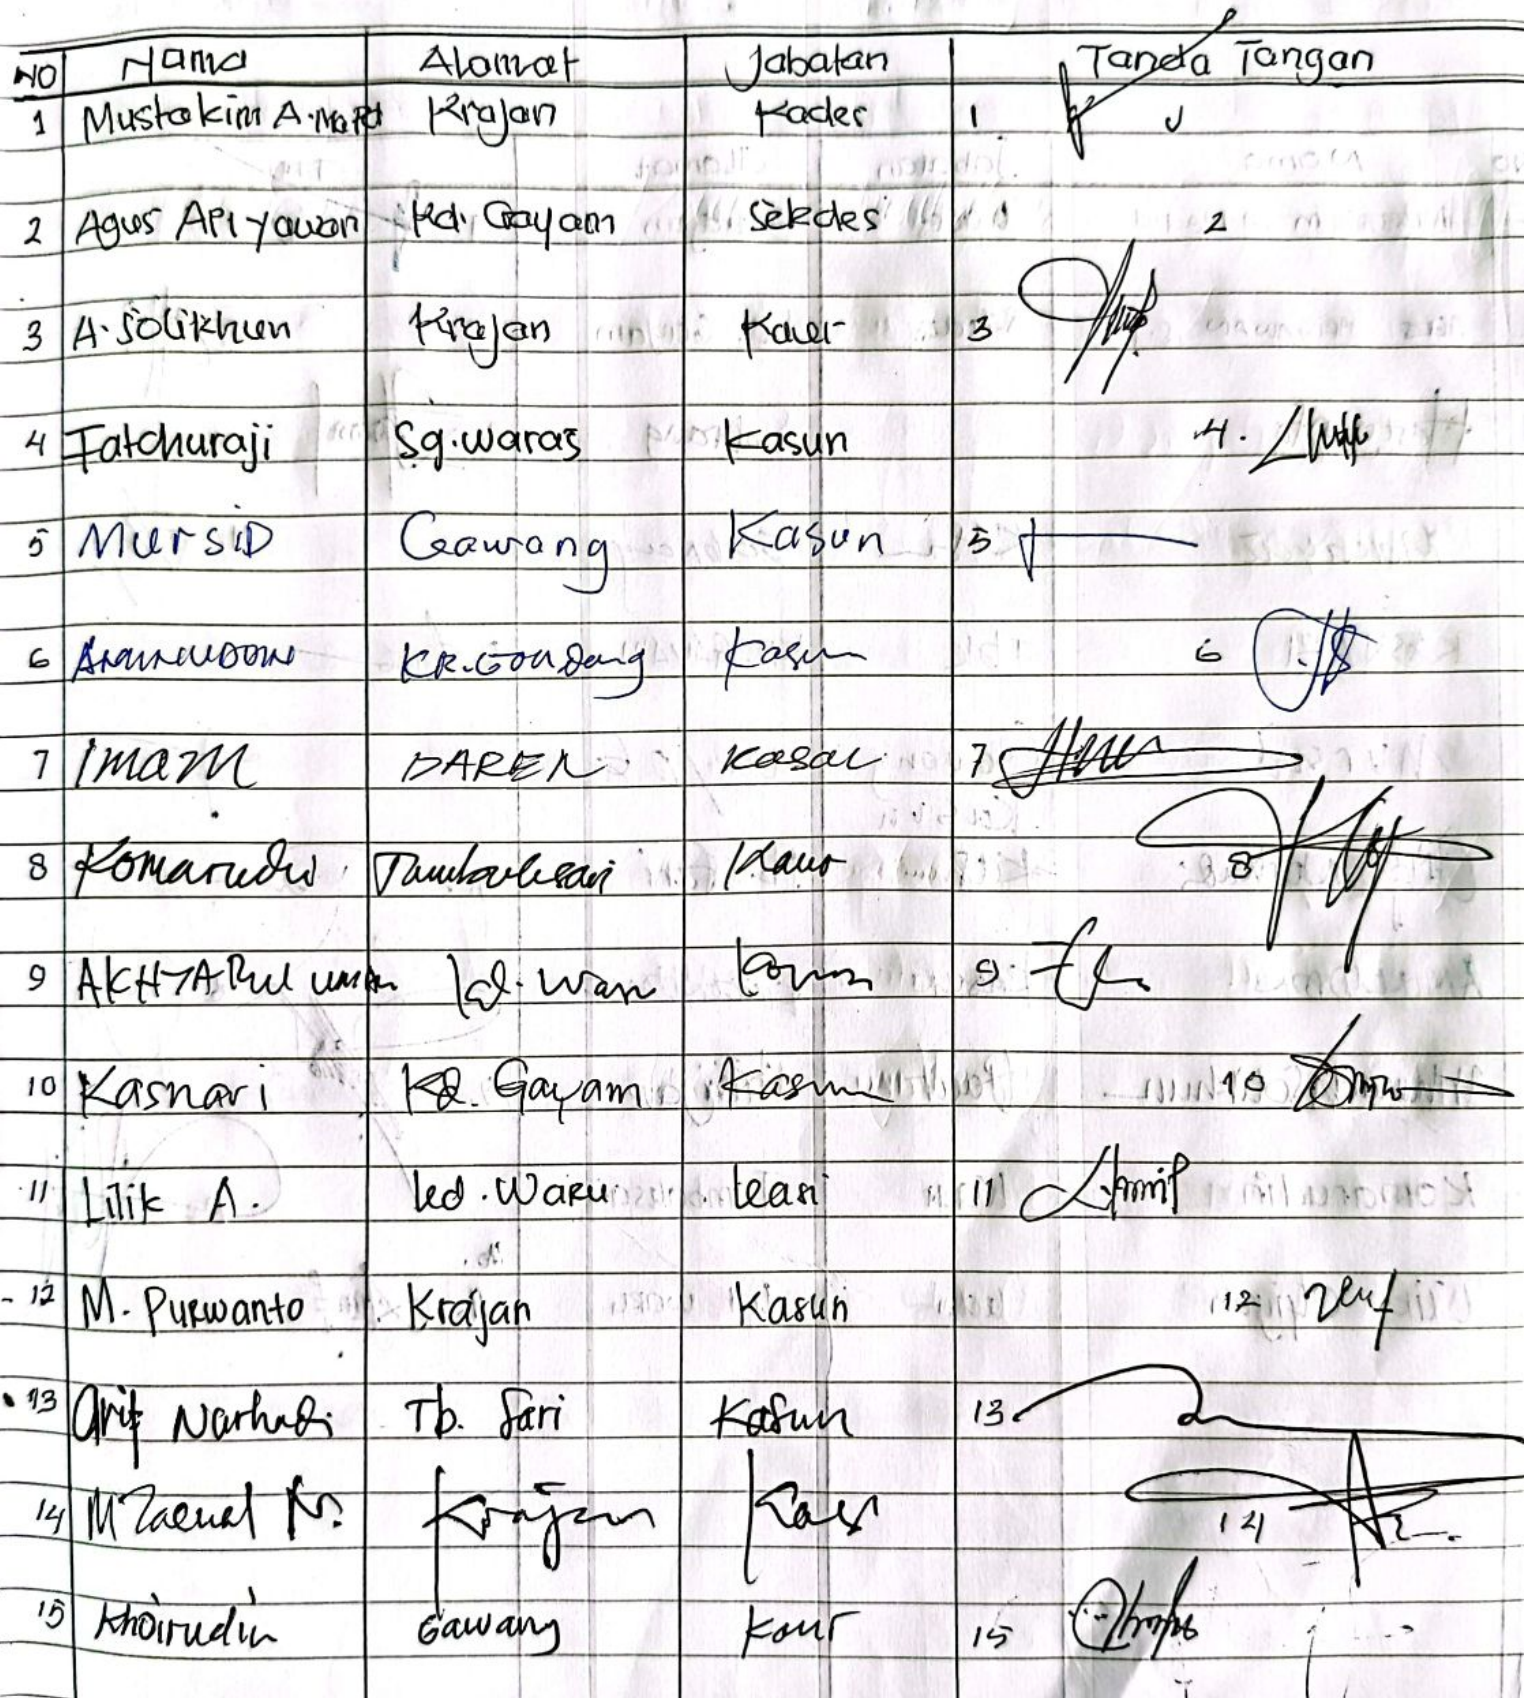 NO Nama Alamat Jabatan Tanda Tangan
1 Mustakim A.Ma.Pd Krajan Kades 1
2 Agus Apriyawan Kd. Gayam Sekdes 2
3 A. Solikhun Krajan Kaur 3
4 Fatchuraji Sg. waras Kasun 4.
5 MursiD Gawang Kasun 5
6 KR. Gondang Kasun 6
7 Imam DAREN 7
8 Komarudin Tambaksari Kaur 8
9 AKHYARul 9.
10 Kasnari Kd. Gayam Kasun 10
11 Lilik A. Kd. Waru Kasi 11
12 M. Purwanto Krajan Kasun 12.
13 Arif Narhadi Tb. Sari Kasun 13.
14 M Zaenal N. Krajan Kaur 14
15 Khoirudin Gawang Kaur 15